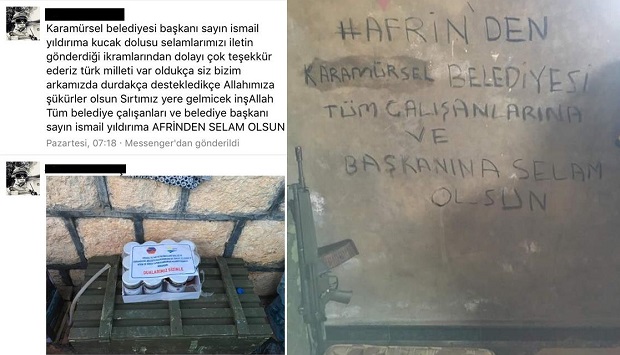 Karamürsel belediyesi başkanı sayın ismail
yıldırıma kucak dolusu selamlarımızı iletin
gönderdiği ikramlarından dolayı çok teşekkür
ederiz türk milleti var oldukça siz bizim
arkamızda durdakça destekledikçe Allahımıza
şükürler olsun Sırtımız yere gelmicek inşAllah
Tüm belediye çalışanları ve belediye başkanı
sayın ismail yıldırıma AFRİNDEN SELAM OLSUN
Pazartesi, 07:18 • Messenger'dan gönderildi
DUALARIMIZ SİZİNLE
#AFRİN'DEN
KARAMÜRSEL BELEDİYESİ
TÜM ÇALIŞANLARINA
VE
BAŞKANINA SELAM
OLSUN